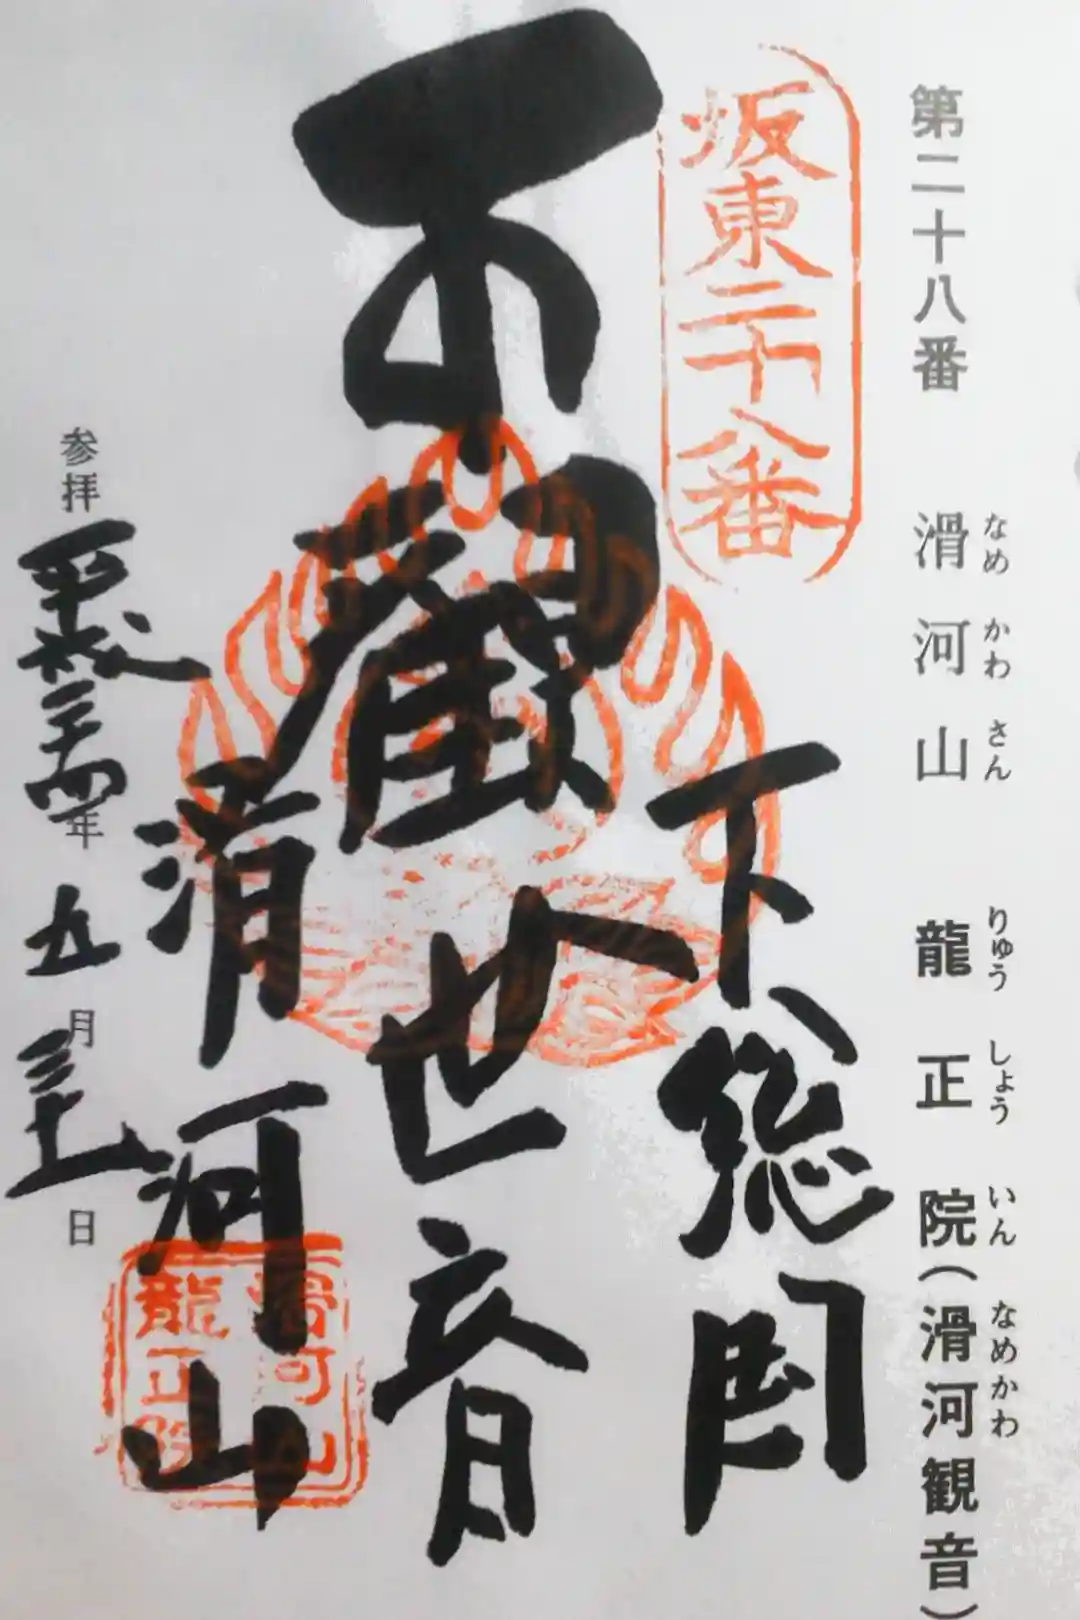 第二十八番 滑河山 龍正院(滑河観音)
なめ かわ さん りゅう しょう いん なめかわ
坂東二十八番
下総国
観世音
滑河山
滑河山
龍正院
参拝 平成二十四年 五月 三十一日